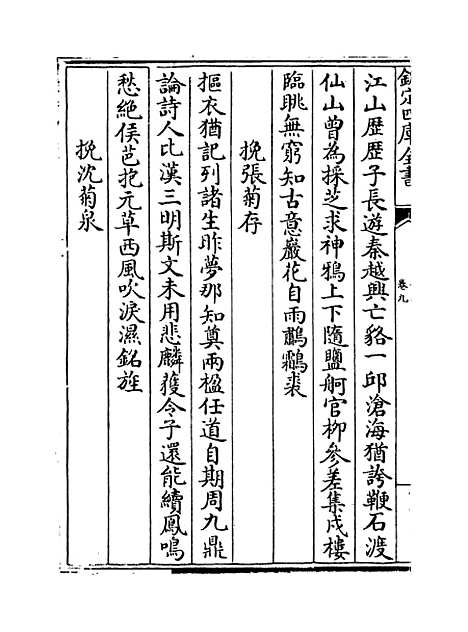 欽定四庫全書
卷九
江山歴歴子長遊秦越興亡貉一邱滄海猶誇鞭石渡
仙山曾為採芝求神鴉上下隨鹽舸官柳參差集戍樓
臨眺無窮知古意巖花自雨鸕鷀裘
挽張菊存
摳衣猶記列諸生昨夢那知奠兩楹任道自期周九鼎
論詩人比漢三明斯文未用悲麟獲令子還能續鳳鳴
愁絶侯芭抱元草西風吹淚濕銘旌
挽沈菊泉